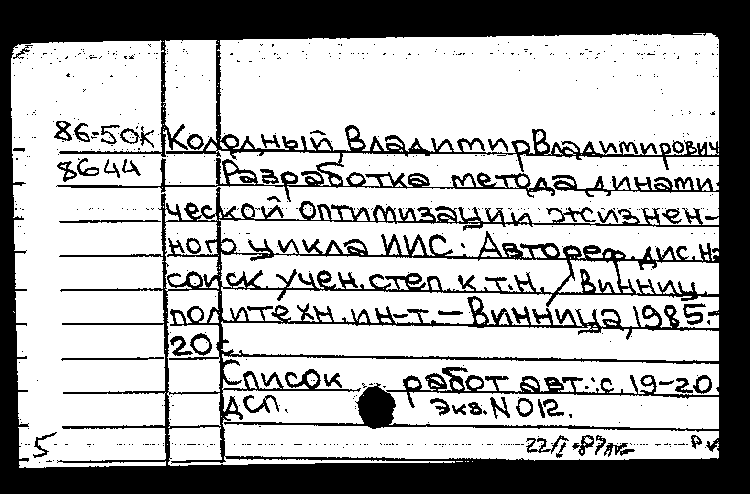 86-50к Колодный Владимир Владимирович
8644 Разработка метода динами-
ческой оптимизации жизнен-
ного цикла ИИС: Автореф. дис. на
соиск. учен. степ. к.т.н. / Винниц.
политехн. ин-т. – Винница, 1985.-
20 с.
Список работ авт.: с. 19-20.
ДСП. Экз. N 012.
5 22/I-87